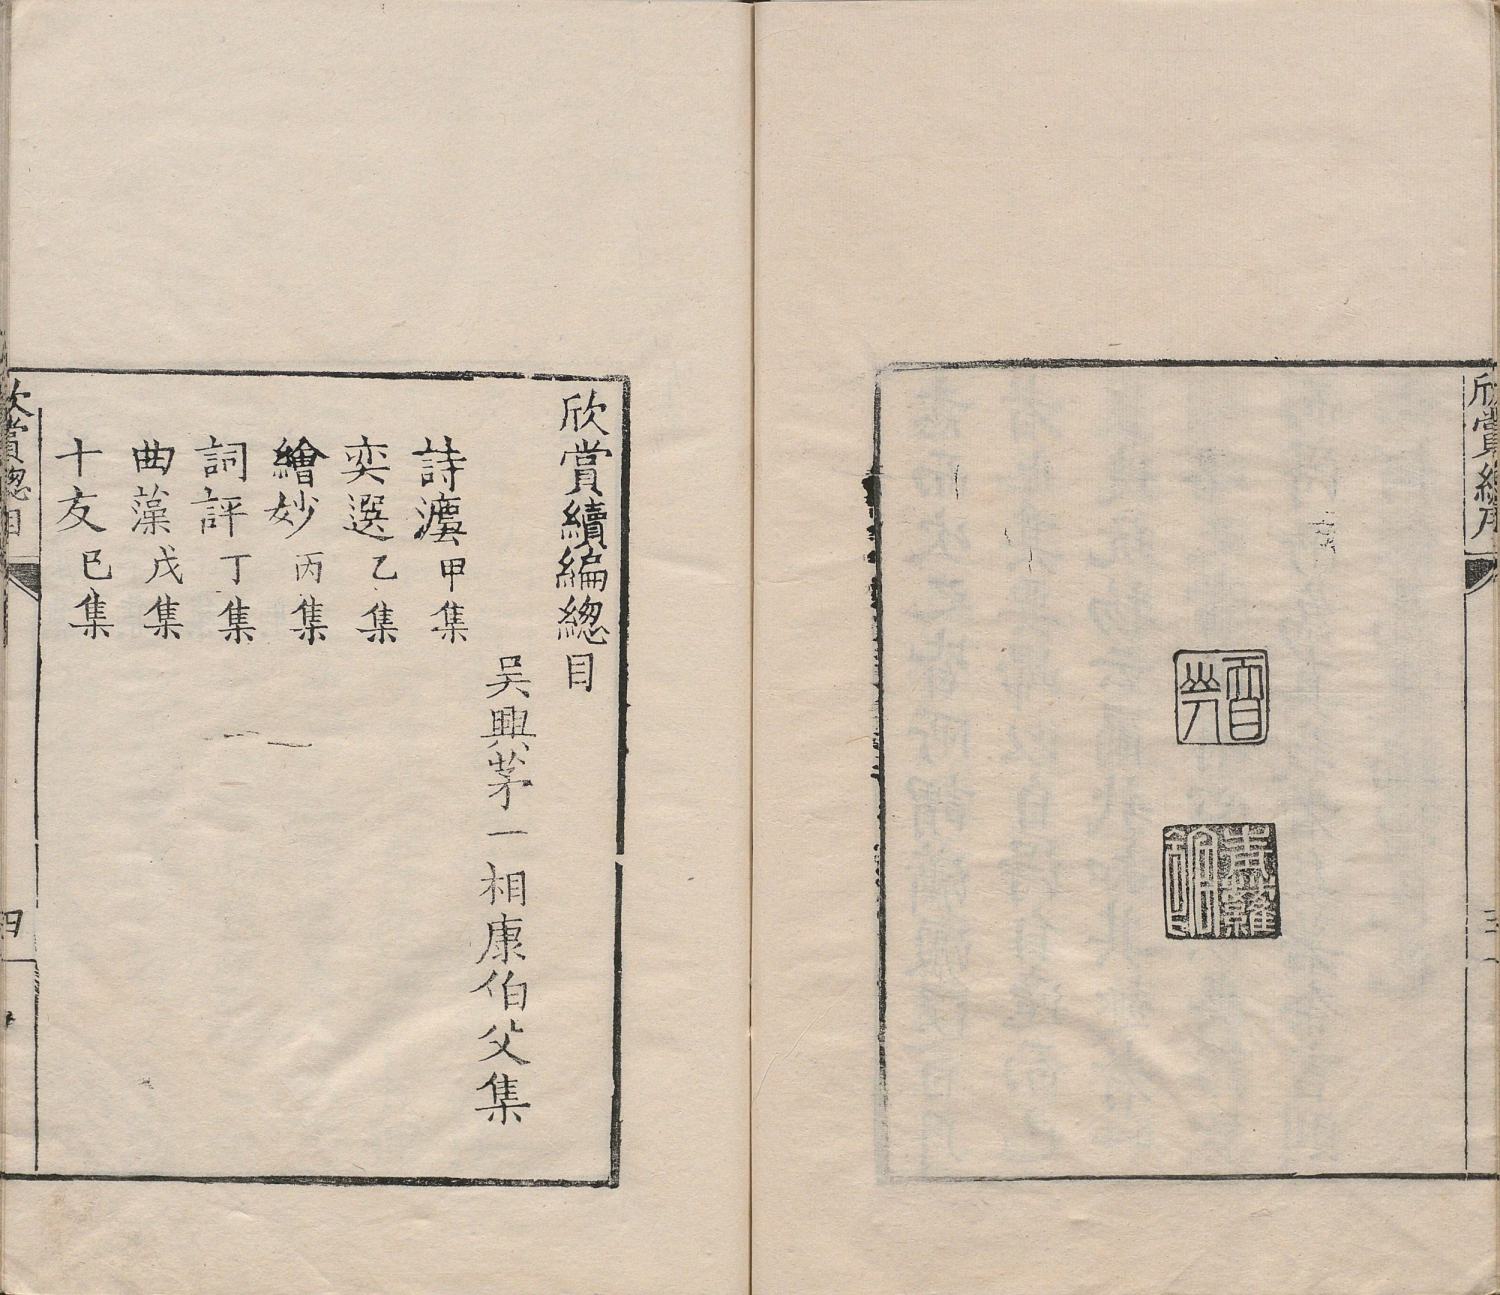 欣賞
三
欣賞續編緫目
吳興茅一相康伯父集
詩灋 甲集
奕選 乙集
繪妙 丙集
詞評 丁集
曲藻 戊集
十友 巳集
欣賞緫目
四